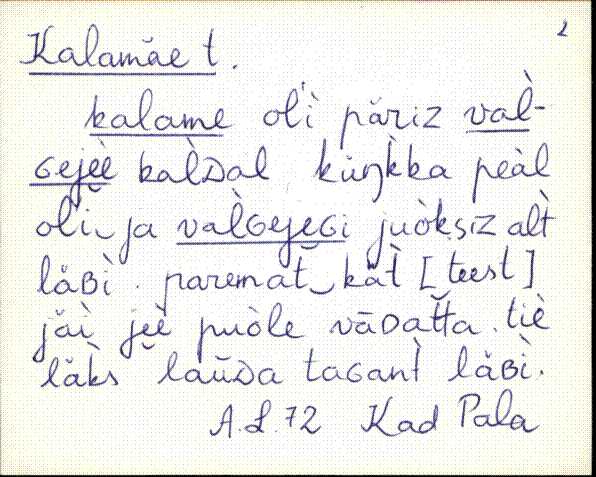 2
Kalamäe t.
kalame ol̀i päriz val̀-
Gejèè̮ kal̀Dal kùŋ̀kka peàl
oĺi‿ja val̀GejeGi juòksiz alt̀
läBì. paremat̆‿kät̀ [teest]
jäì jeè̮ puòle vāDat̆ta. tiè
läk̀s laùDa taGant̀ läBì.
A.L.72 Kad Pala